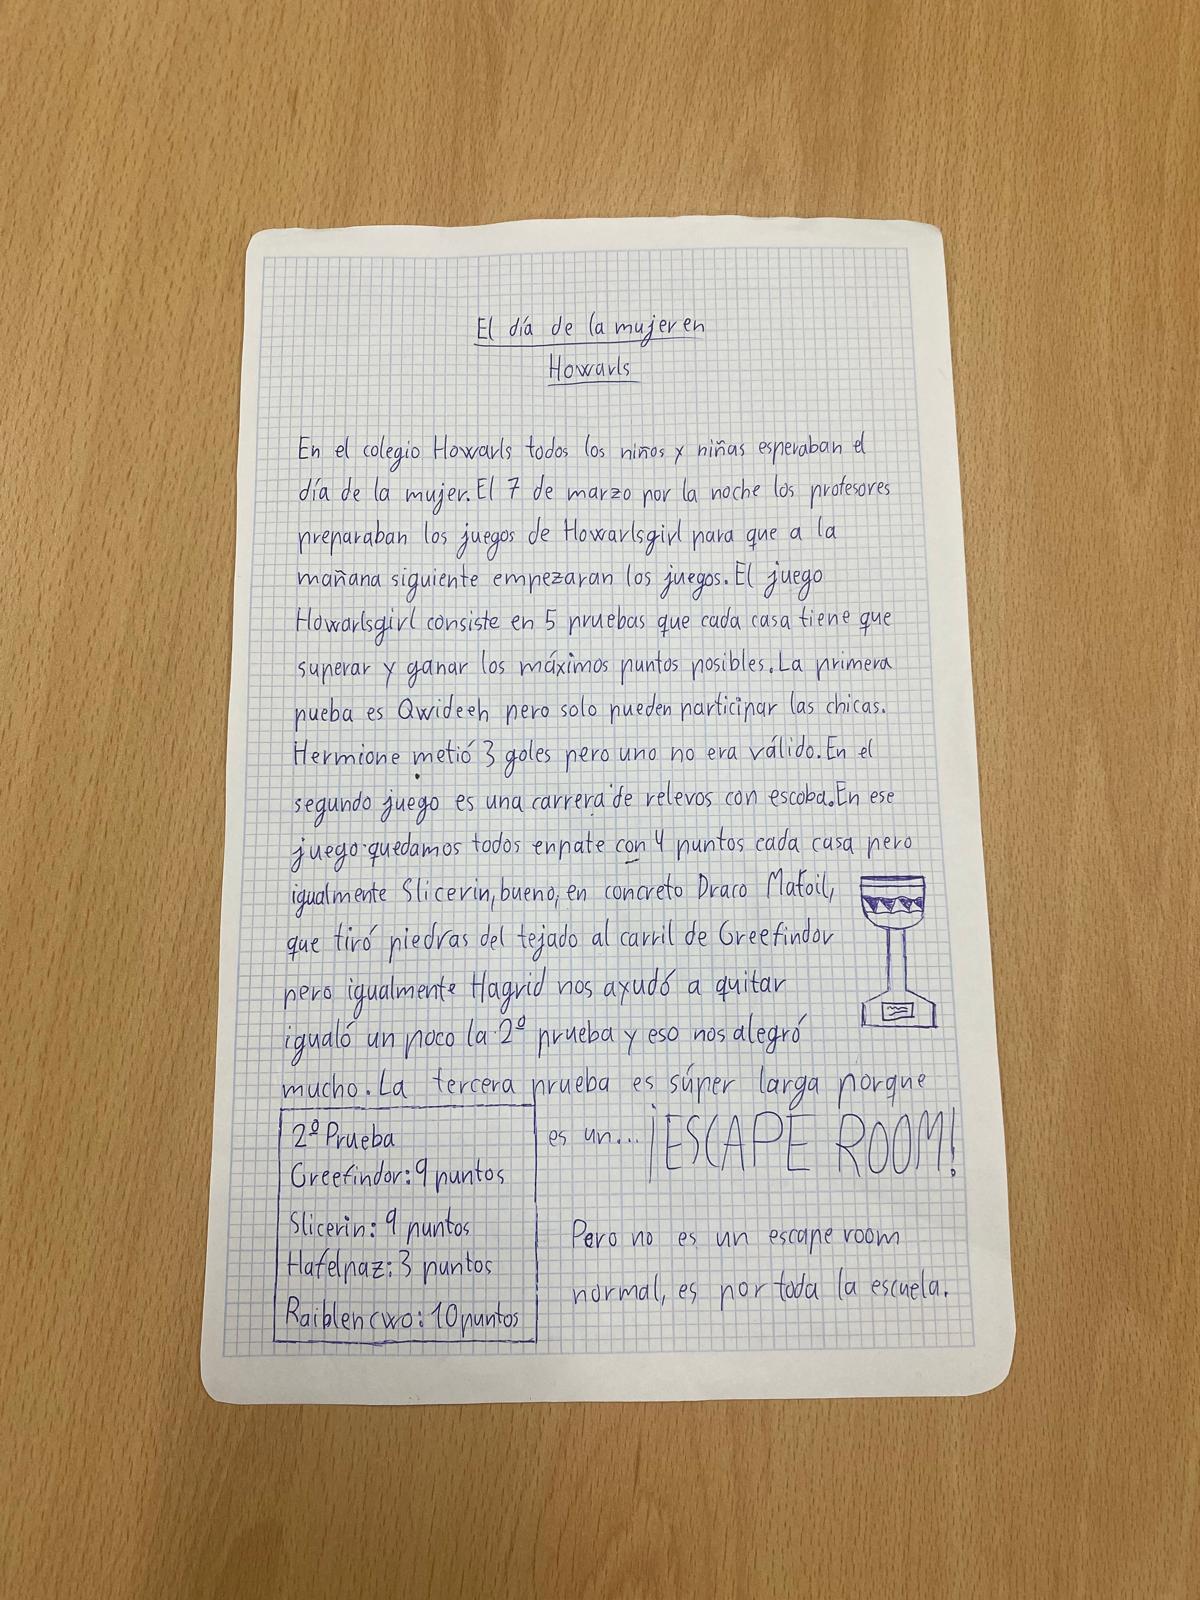 El día de la mujer en
Howarls
En el colegio Howarls todos los niños y niñas esperaban el
día de la mujer. El 7 de marzo por la noche los profesores
preparaban los juegos de Howarlsgirl para que a la
mañana siguiente empezaran los juegos. El juego
Howarlsgirl consiste en 5 pruebas que cada casa tiene que
superar y ganar los máximos puntos posibles. La primera
pueba es Qwideeh pero solo pueden participar las chicas.
Hermione metió 3 goles pero uno no era válido. En el
segundo juego es una carrera de relevos con escoba. En ese
juego quedamos todos enpate con 4 puntos cada casa pero
igualmente Slicerin, bueno, en concreto Draco Mafoil,
que tiró piedras del tejado al carril de Greefindor
pero igualmente Hagrid nos ayudó a quitar
igualó un poco la 2º prueba y eso nos alegró
mucho. La tercera prueba es súper larga porque
es un... ¡ESCAPE ROOM!
Pero no es un escape room
normal, es por toda la escuela.
2º Prueba
Greefindor: 9 puntos
Slicerin: 9 puntos
Hafelpaz: 3 puntos
Raiblencwo: 10 puntos